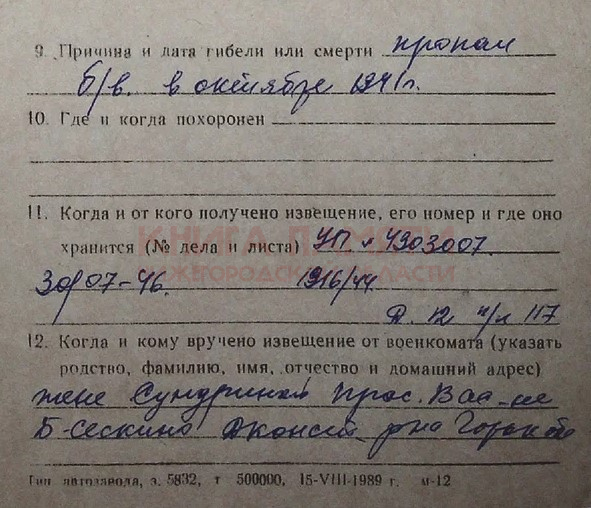 9. Причина и дата гибели или смерти пропал
б/в. в октябре 1941г.
10. Где и когда похоронен
11. Когда и от кого получено извещение, его номер и где оно
КНИГА ПАМЯТИ
хранится (№ дела и листа) УП
НИЖЕГОРОДСКОЙ ОБЛАСТИ
07-46. 1916/44
Д. 12 н/л 117
12. Когда и кому вручено извещение от военкомата (указать
родство, фамилию, имя, отчество и домашний адрес)
жене Прос. Вас-не
Б-Сескино р-на
Тип. автозавода, з. 5832, т 500000, 15-VIII-1989 г. м-12